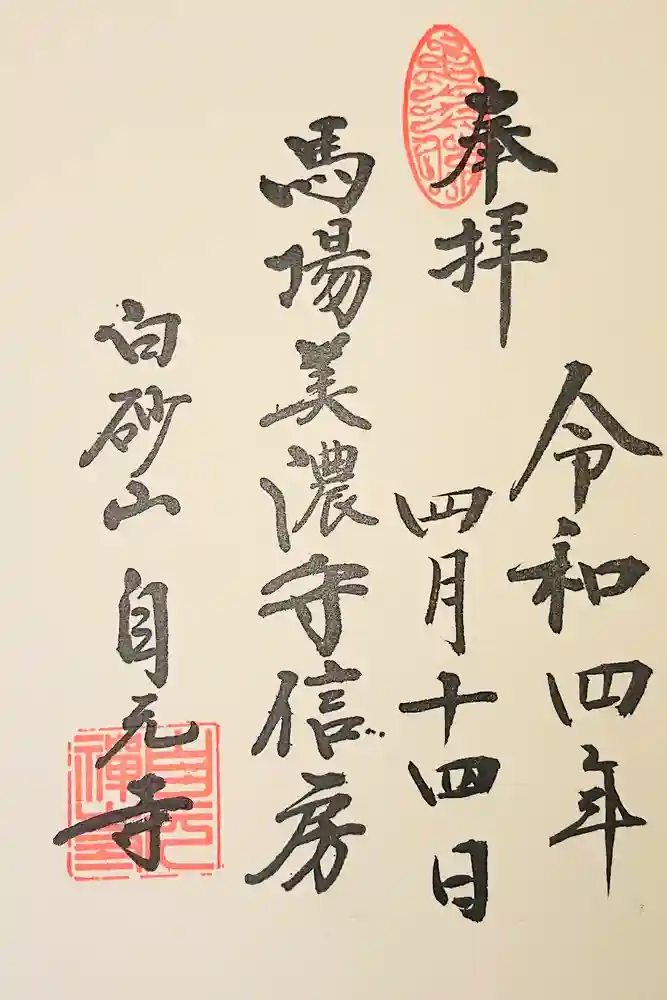 令和四年
奉拝
四月十四日
馬場美濃守信房
白砂山 自元寺
自元
禅寺